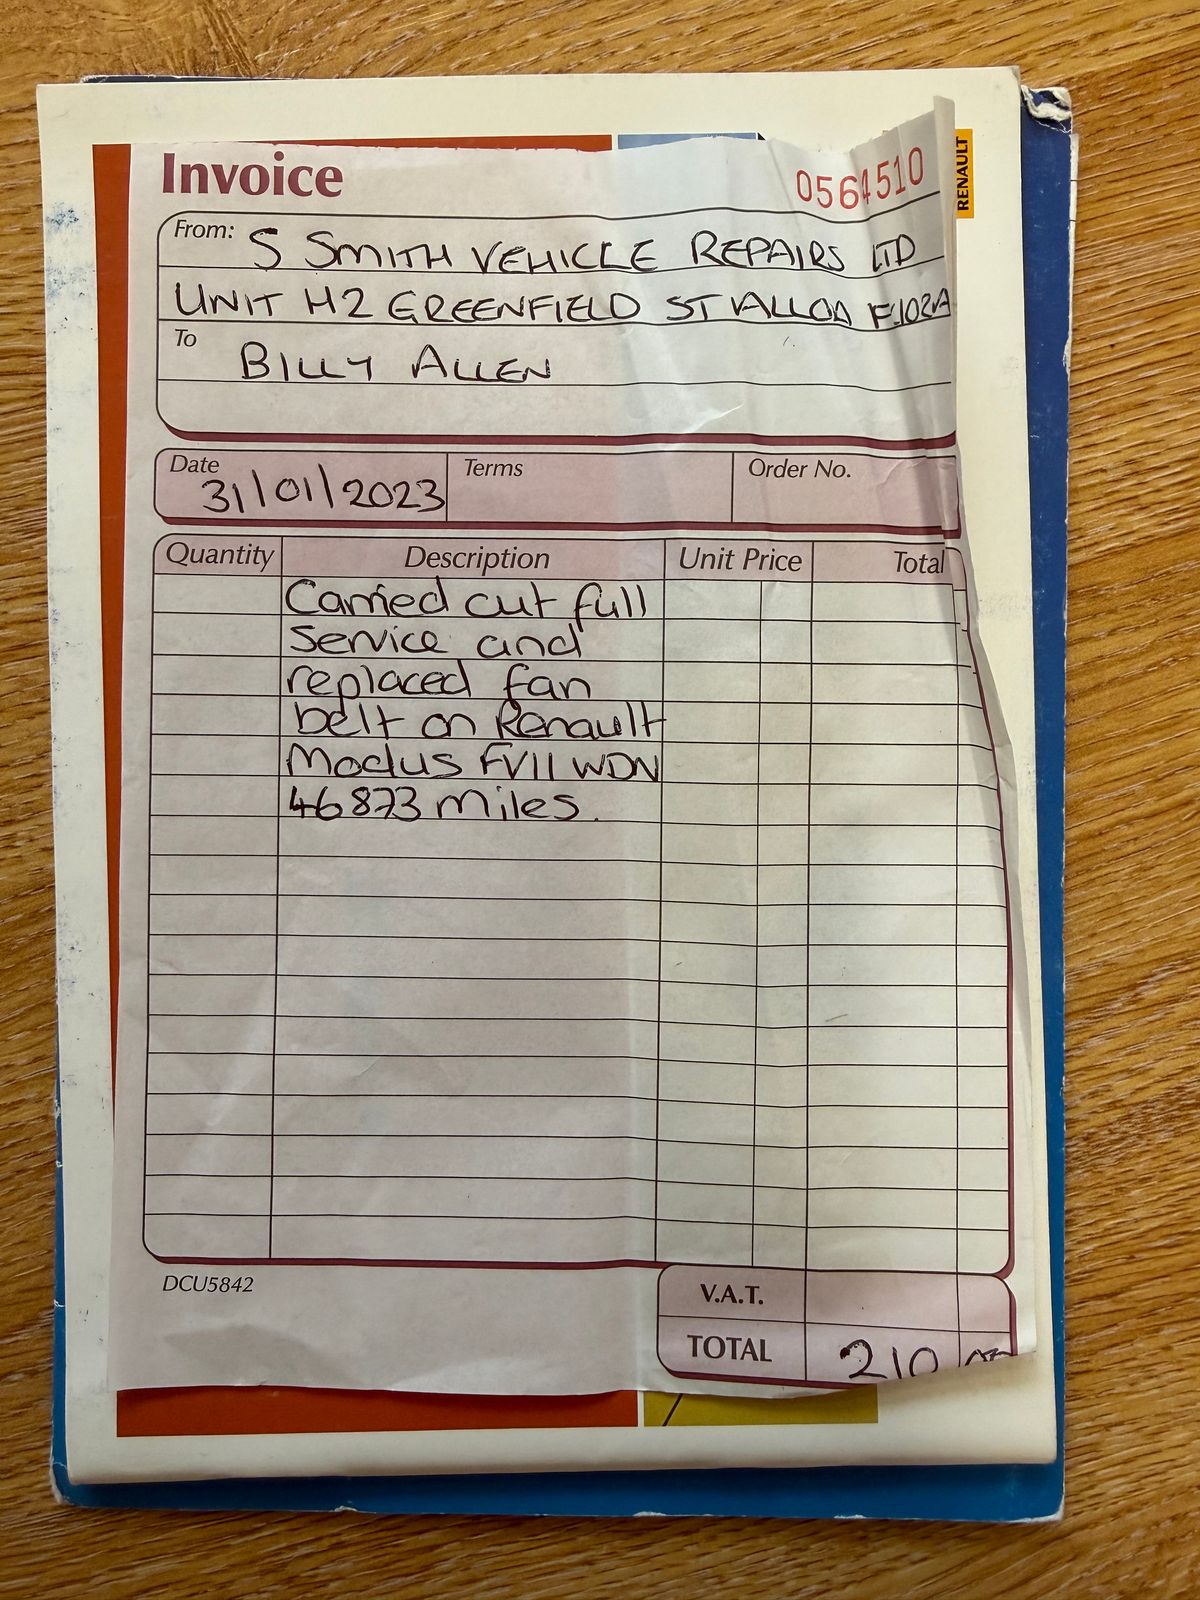 Invoice
0564510
RENAULT
From: S SMITH VEHICLE REPAIRS LTD
UNIT H2 GREENFIELD ST ALLOA
To BILLY ALLEN
Date 31/01/2023 Terms Order No.
Quantity Description Unit Price Total
Carried out full
service and
replaced fan
belt on Renault
Modus FV11 WDN
46873 miles.
DCU5842
V.A.T.
TOTAL 210